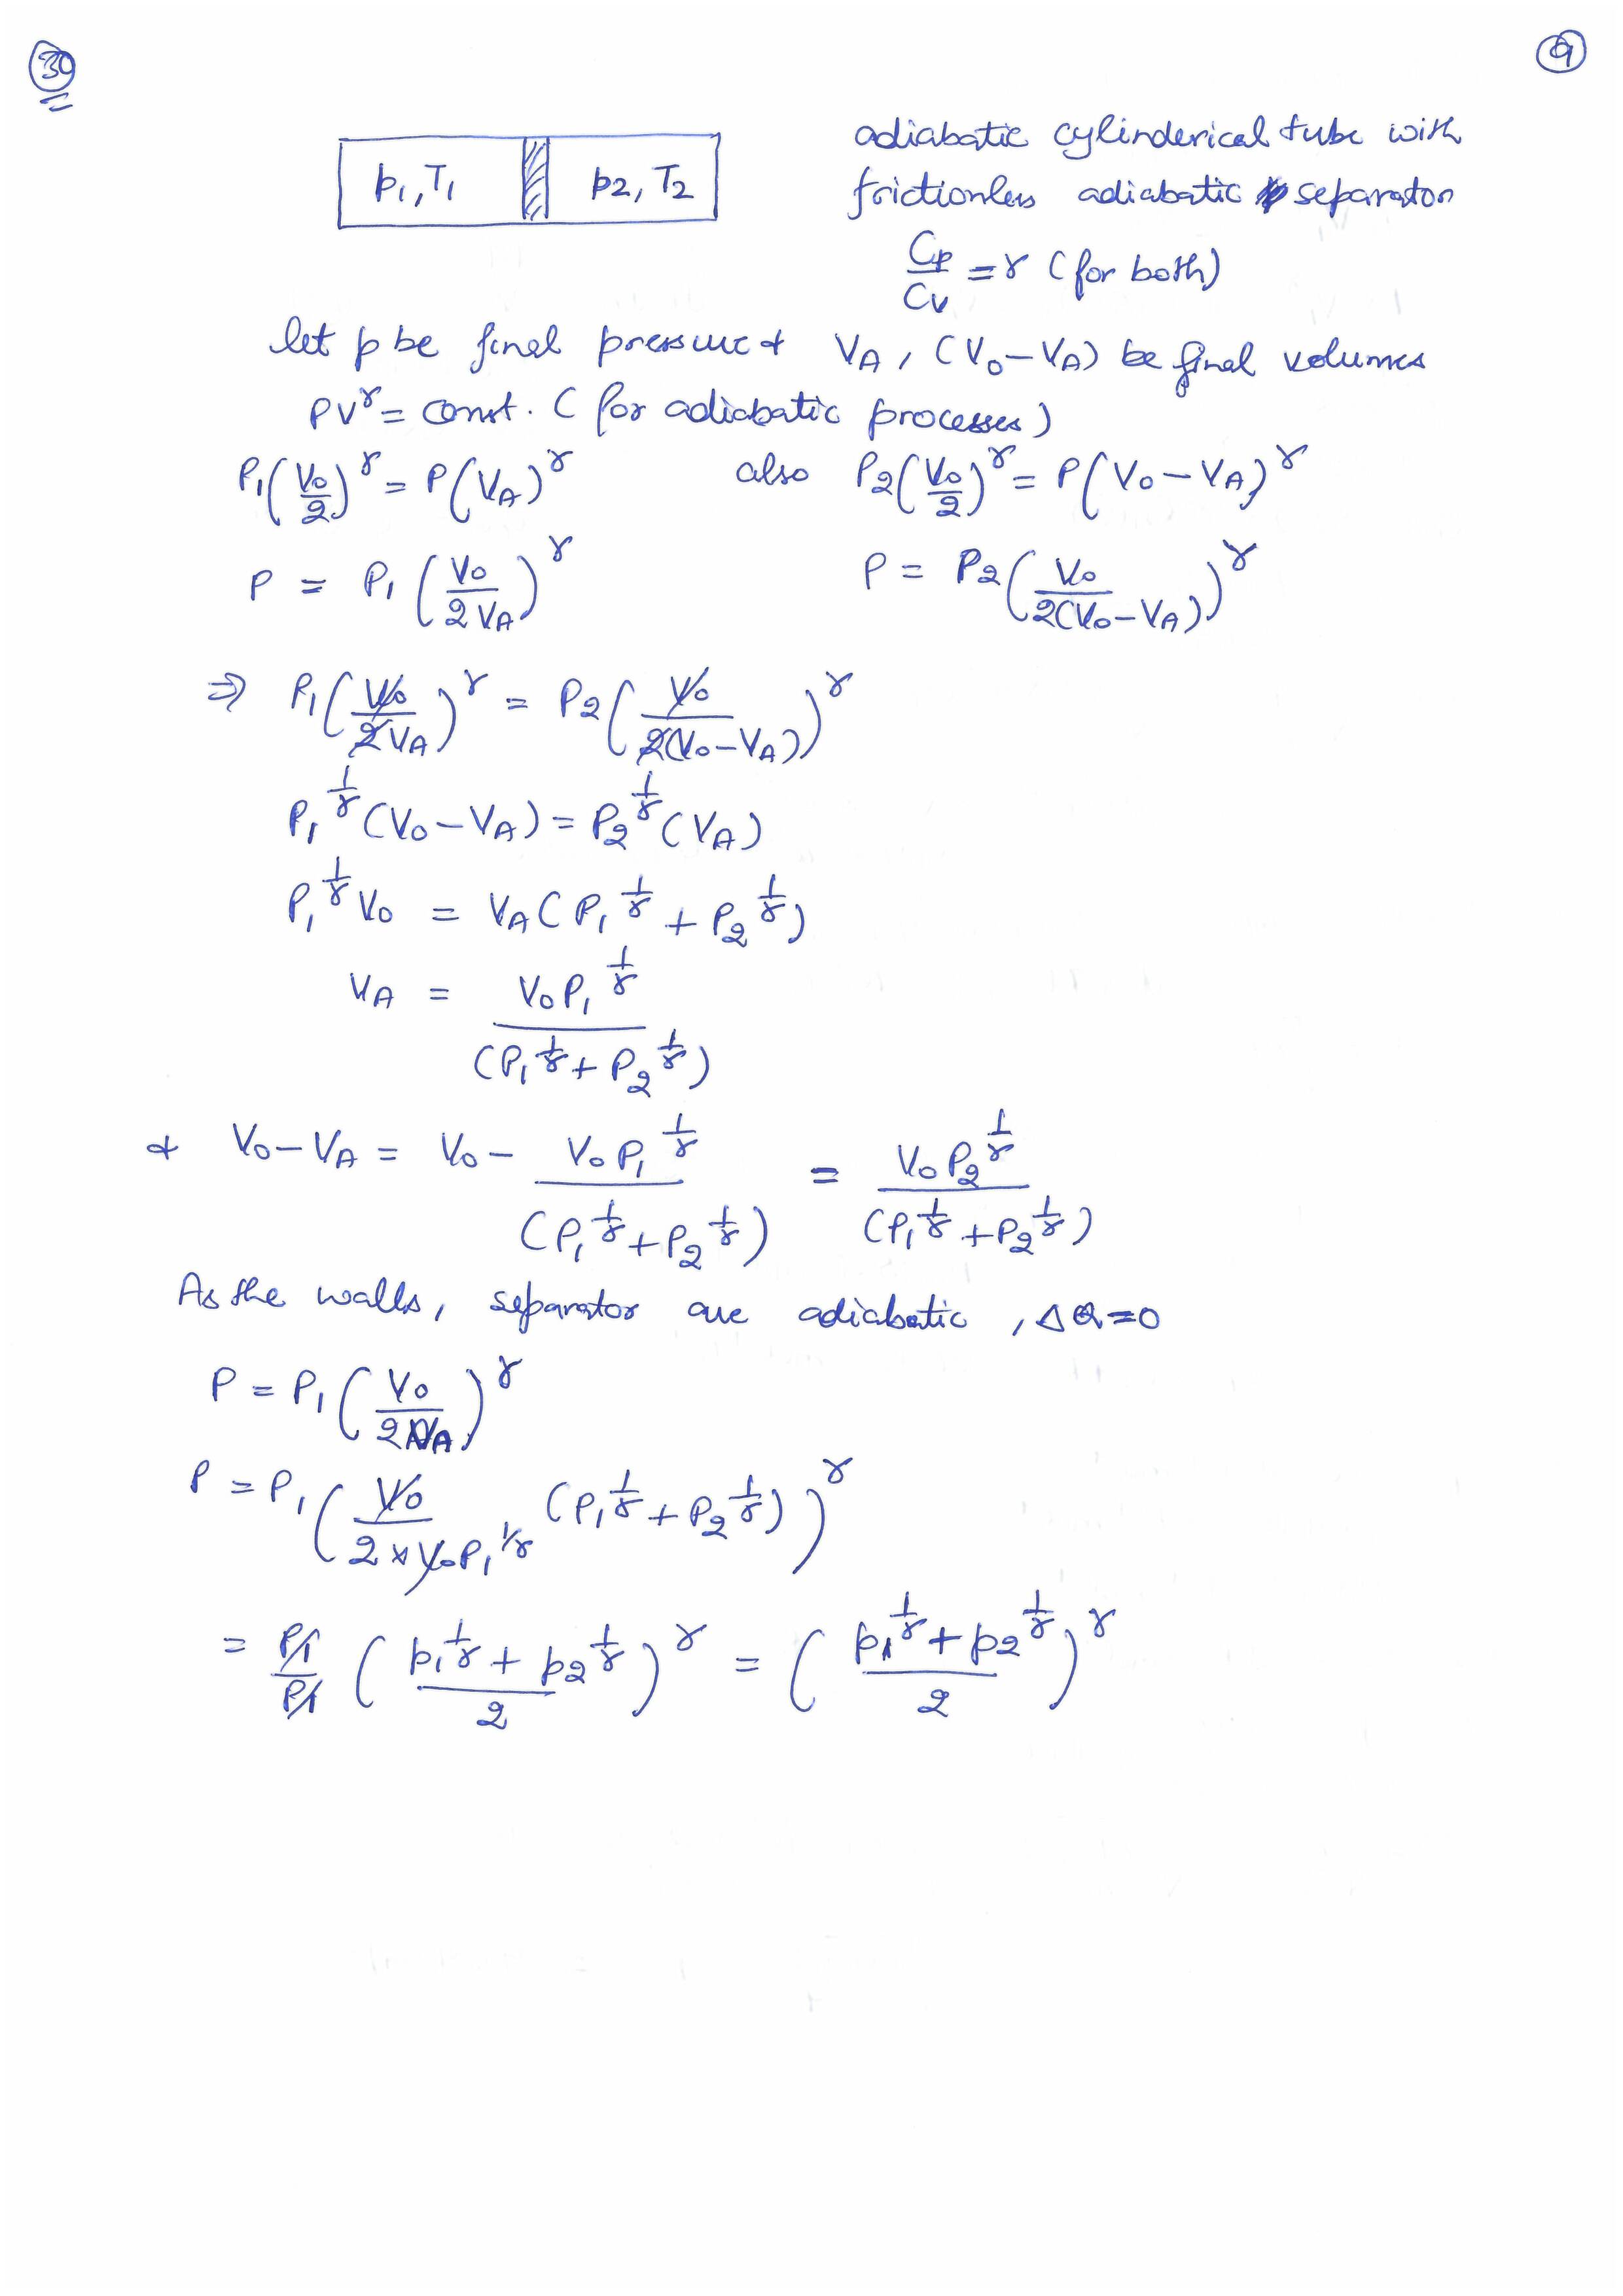 30
9
p1, T1 p2, T2
adiabatic cylinderical tube with
frictionless adiabatic separator
Cp/Cv = γ (for both)
let p be final pressure & VA, (V0 − VA) be final volumes
PV^γ = const. (for adiabatic processes)
P1(V0/2)^γ = P(VA)^γ also P2(V0/2)^γ = P(V0 − VA)^γ
P = P1(V0/2VA)^γ P = P2(V0/2(V0 − VA))^γ
⇒ P1(V0/2VA)^γ = P2(V0/2(V0 − VA))^γ
P1^1/γ (V0 − VA) = P2^1/γ (VA)
P1^1/γ V0 = VA(P1^1/γ + P2^1/γ)
VA = V0P1^1/γ/(P1^1/γ + P2^1/γ)
& V0 − VA = V0 − V0P1^1/γ/(P1^1/γ + P2^1/γ) = V0P2^1/γ/(P1^1/γ + P2^1/γ)
As the walls, separator are adiabatic, ΔQ=0
P = P1(V0/2VA)^γ
P = P1(V0/2×V0P1^1/γ (P1^1/γ + P2^1/γ))^γ
= P1/P1 (p1^1/γ + p2^1/γ/2)^γ = (p1^1/γ + p2^1/γ/2)^γ